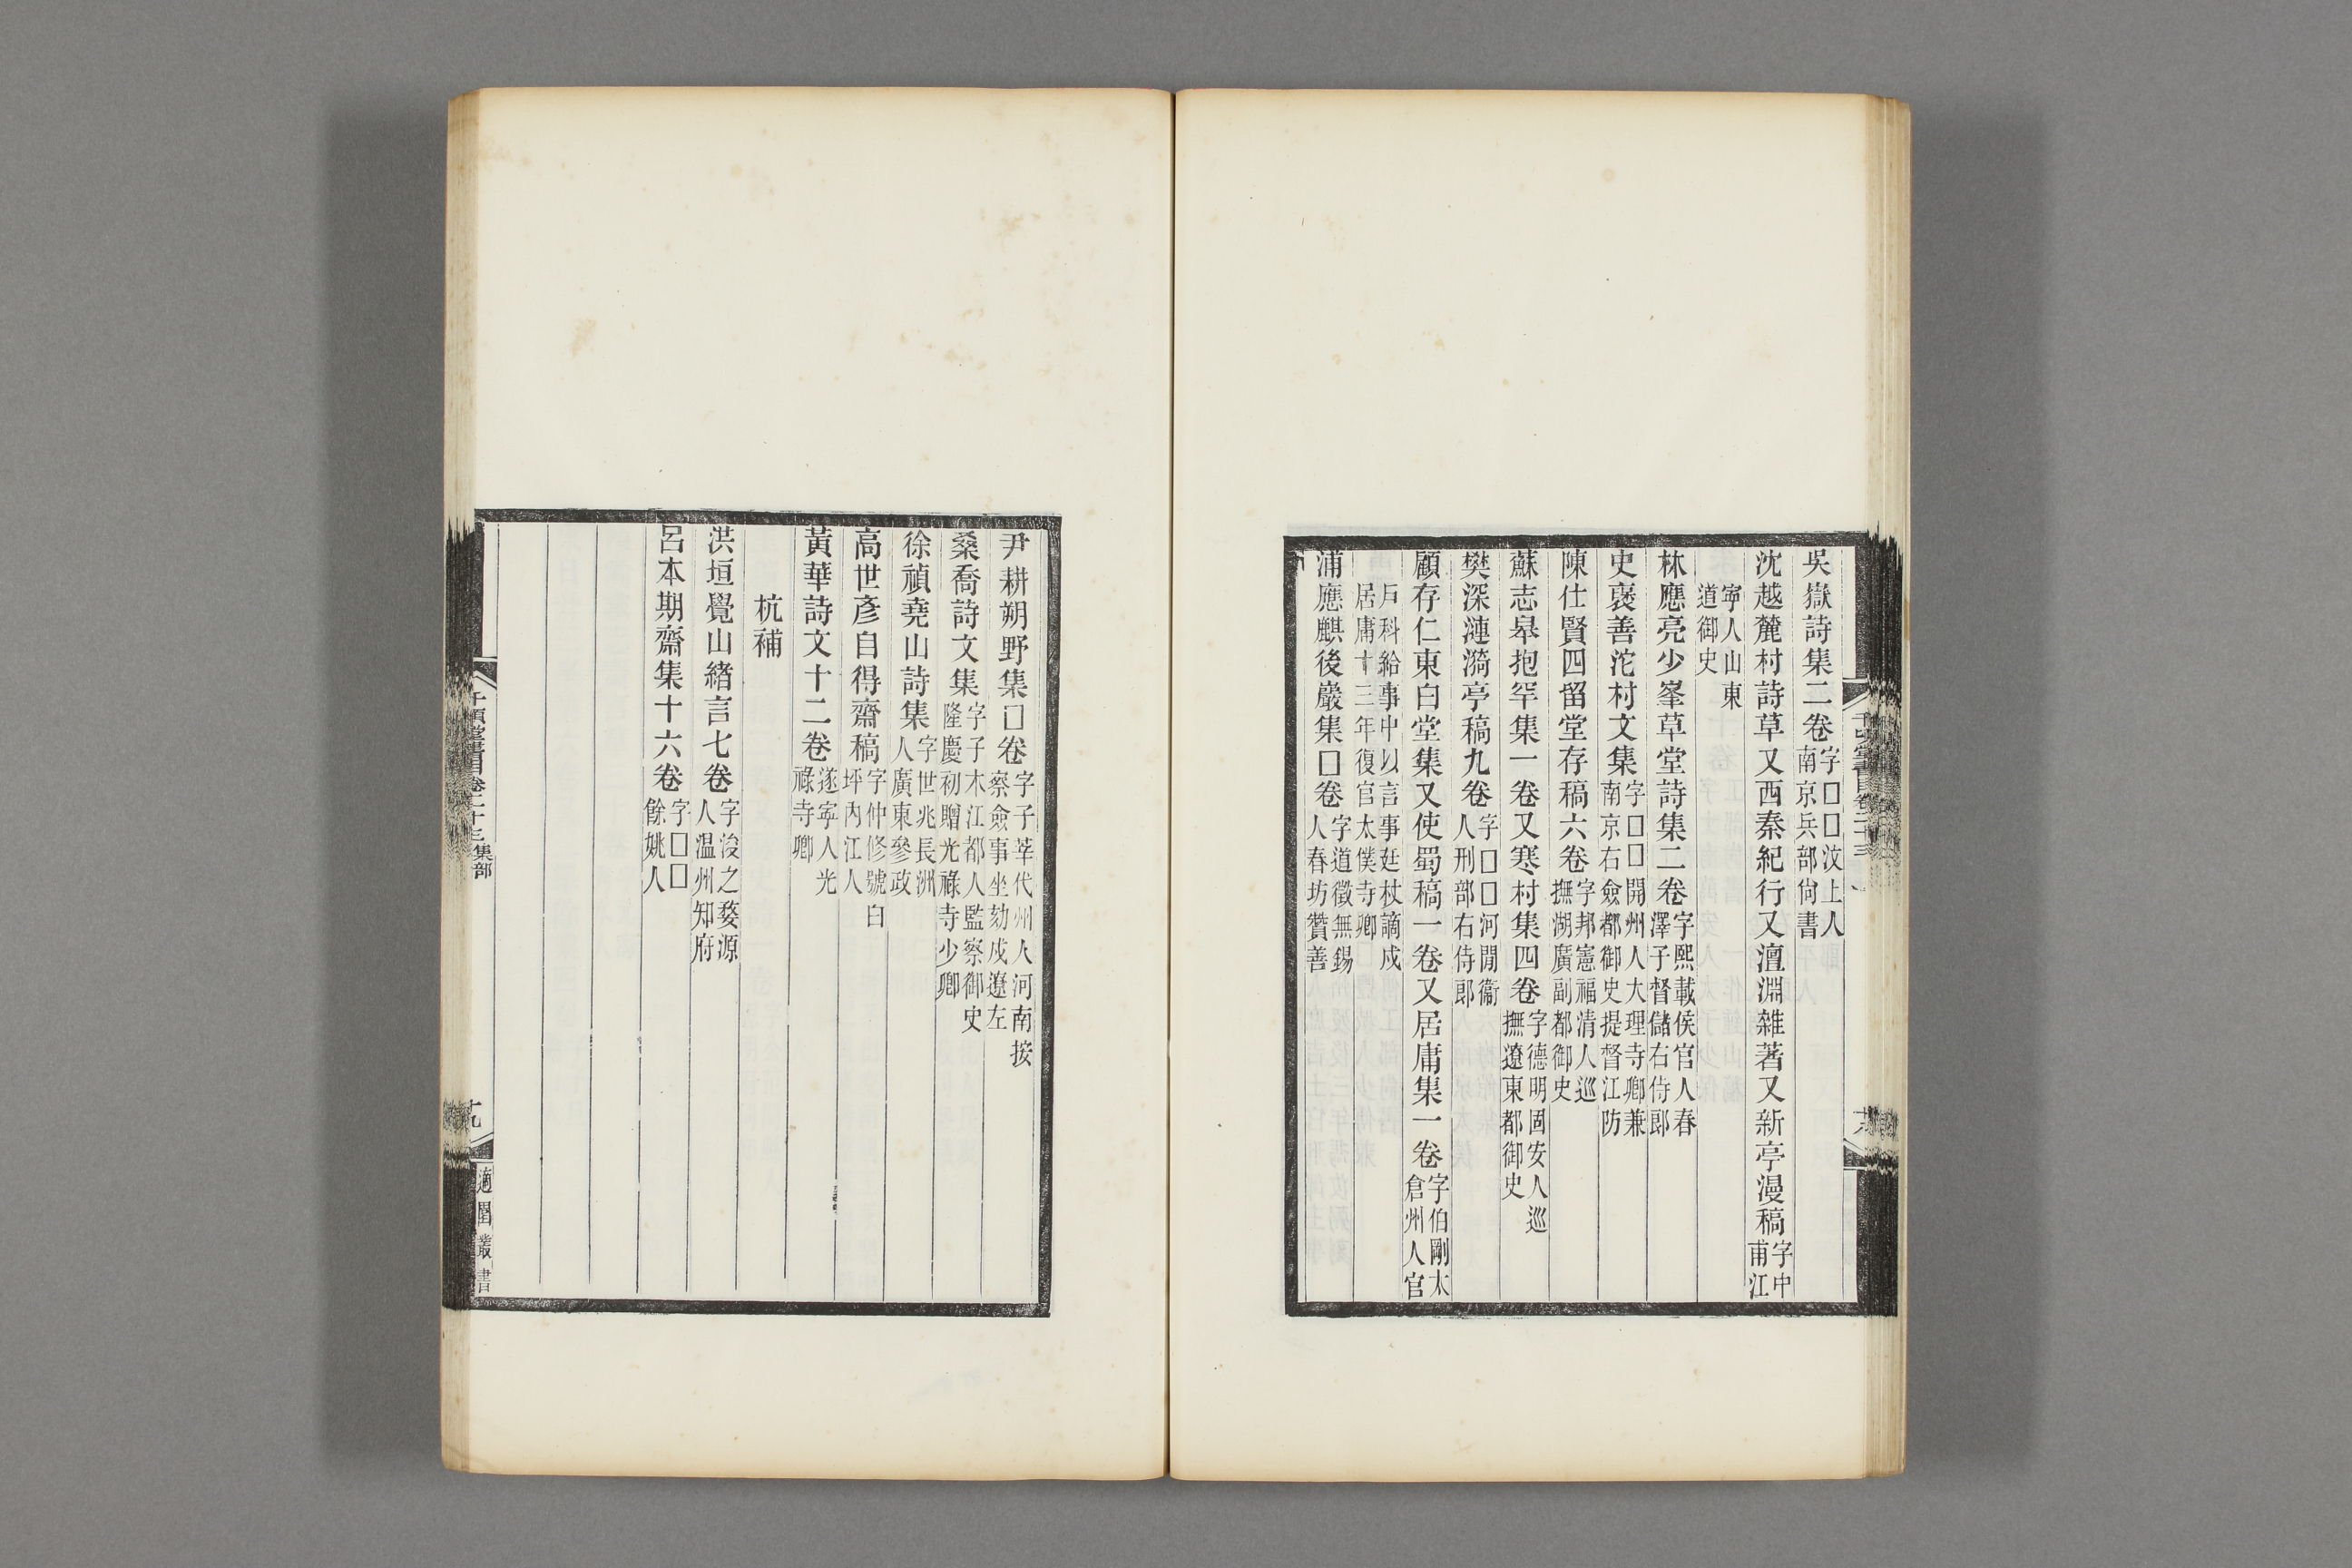 吳嶽詩集二卷字□□汶上人南京兵部尙書
沈越麓村詩草又西秦紀行又澶淵雜著又新亭漫稿字中甫江
寧人山東道御史
林應亮少峯草堂詩集二卷字熙載侯官人春澤子督儲右侍郎
史襃善沱村文集字□□開州人大理寺卿兼南京右僉都御史提督江防
陳仕賢四留堂存稿六卷字邦憲福清人巡撫湖廣副都御史
蘇志皋抱罕集一卷又寒村集四卷字德明固安人巡撫遼東都御史
樊深漣漪亭稿九卷字□□河閒衞人刑部右侍郎
顧存仁東白堂集又使蜀稿一卷又居庸集一卷字伯剛太倉州人官
戶科給事中以言事廷杖謫戍居庸十三年復官太僕寺卿
浦應麒後巖集□卷字道徵無錫人春坊贊善
尹耕朔野集□卷字子莘代州人河南按察僉事坐劾戍遼左
桑喬詩文集字子木江都人監察御史隆慶初贈光祿寺少卿
徐禎堯山詩集字世兆長洲人廣東參政
高世彥自得齋稿字仲修號白坪內江人
黃華詩文十二卷遂寧人光祿寺卿
杭補
洪垣覺山緒言七卷字浚之婺源人温州知府
呂本期齋集十六卷字□□餘姚人
千頃堂書目卷二十三集部
十九
適園叢書